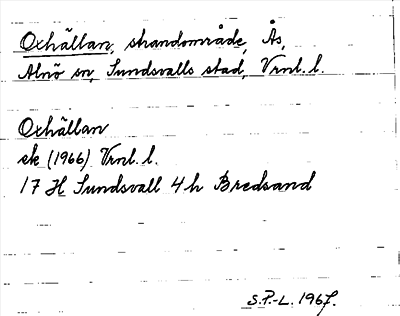 Oxhällan, strandområde, Ås,
Alnö sn, Sundsvalls stad, Vrnl. l.
Oxhällan
ek (1966) Vrnl. l.
17 H Sundsvall 4h Bredsand
S.P.-L. 1967.